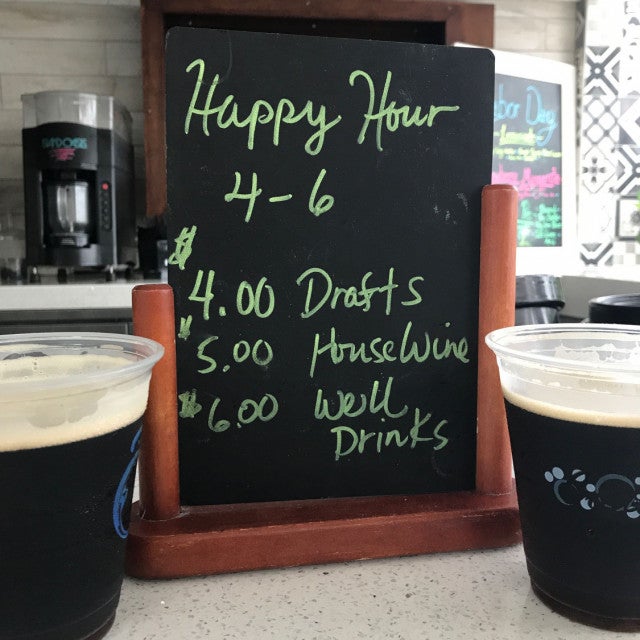 Happy Hour
4-6
$4.00 Drafts
$5.00 House Wine
$6.00 Well
Drinks
bor Day